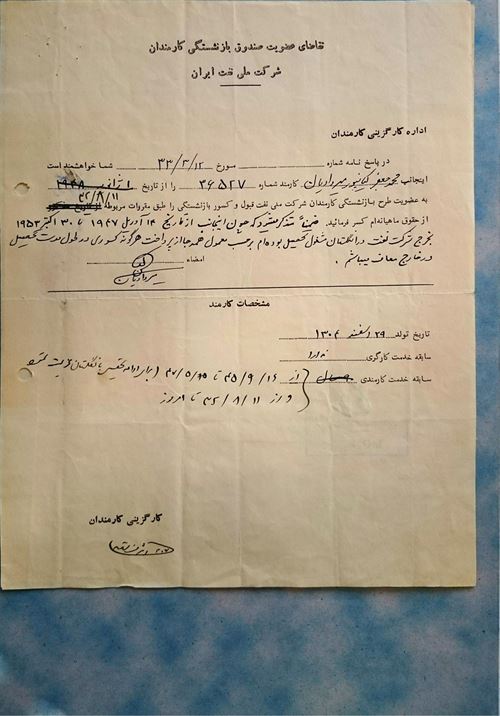 تقاضای عضویت صندوق بازنشستگی کارمندان
شرکت ملی نفت ایران
اداره کارگزینی کارمندان
در پاسخ نامه شماره مورخ ۳۳/۳/۱۲ شما خواهشمند است
اینجانب محمد جعفر کارمند شماره ۳۶۵۲۷ را از تاریخ ۱ ژانویه ۱۹۴۸
۳۲/۸/۱۱
به عضویت طرح بازنشستگی کارمندان شرکت ملی نفت قبول و کسور بازنشستگی را طبق مقررات مربوطه
از حقوق ماهیانه‌ام کسر فرمائید. ضمناً متذکر میشود که چون اینجانب از تاریخ ۱۴ آوریل ۱۹۴۷ تا ۳۰ اکتبر ۱۹۵۳
بخرج شرکت نفت در انگلستان مشغول تحصیل بوده‌ام برحسب معمول از پرداخت هرگونه کسوری در طول مدت تحصیل
در خارج معاف میباشم.
امضاء
مشخصات کارمند
تاریخ تولد ۲۹ اسفند ۱۳۰۴
سابقه خدمت کارگری ندارد
سابقه خدمت کارمندی از ۲۵/۹/۱۶ تا
و از ۳۲/۸/۱۱ تا امروز
کارگزینی کارمندان